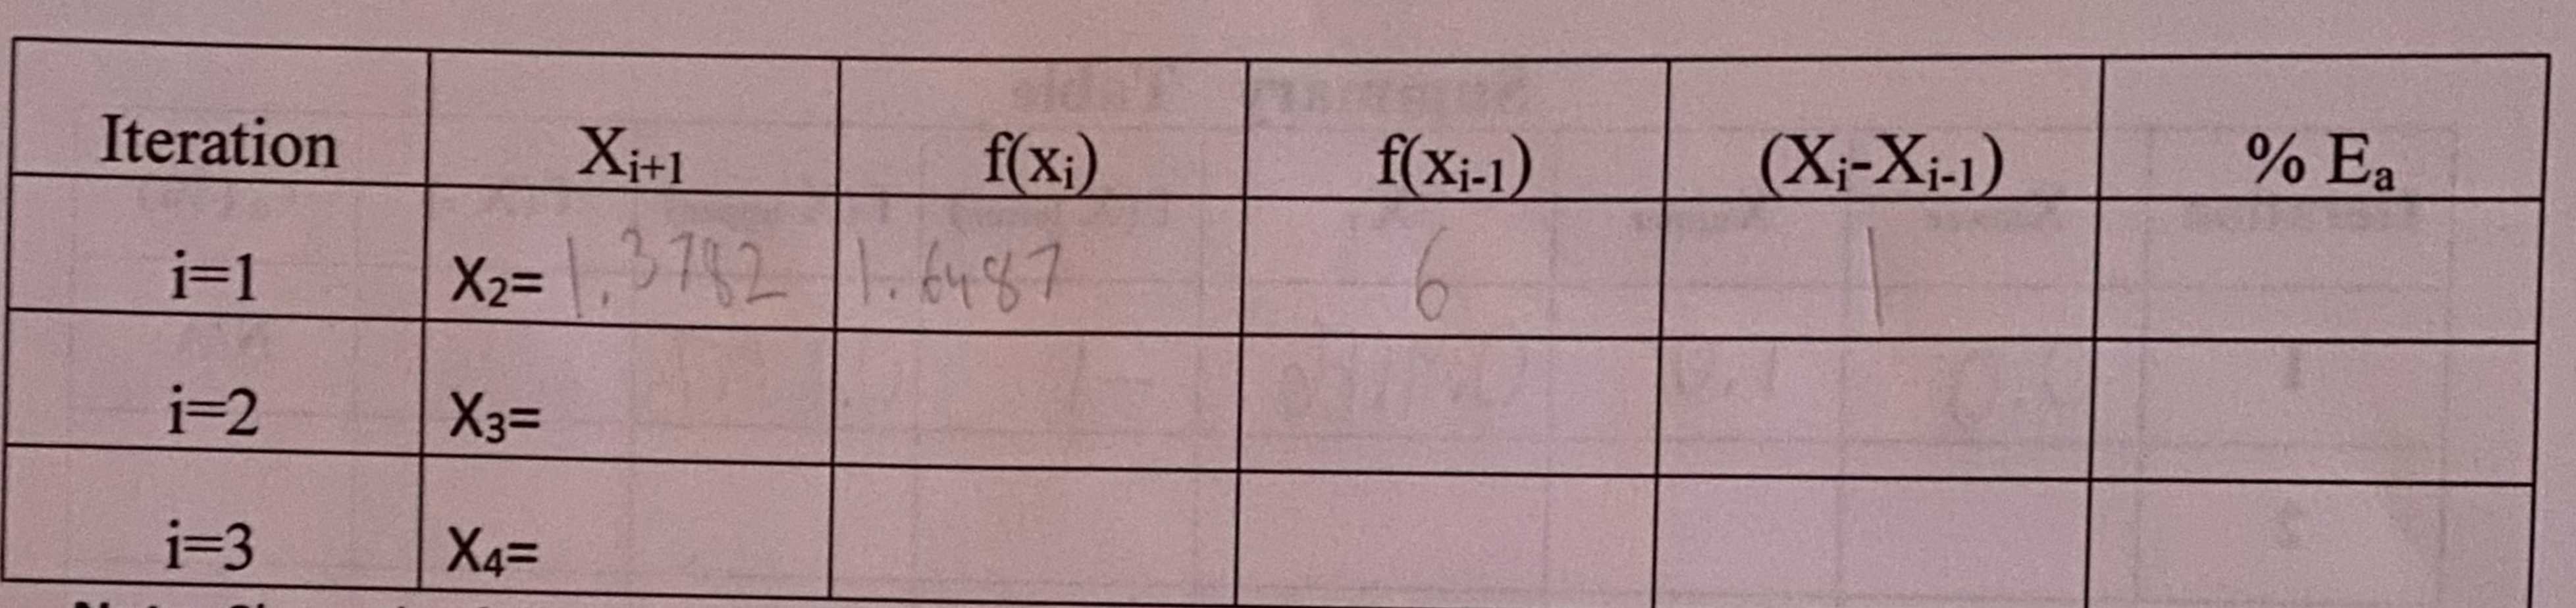 Iteration Xi+1 f(xi) f(xi-1) (Xi-Xi-1) % Ea
i=1 X2= 1.3782 1.6487 6 1
i=2 X3=
i=3 X4=